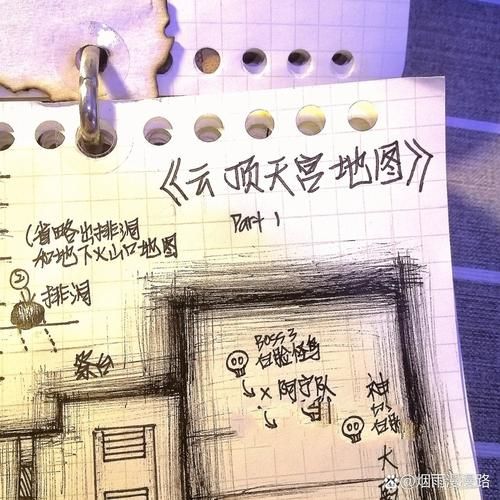 《云顶天宫地图》
Part 1
(省略出排洞
和地下火山口地图
②
排洞
祭台
BOSS 3
白脸怪鸟
× 阿宁队
神
大
@烟雨漫漫路